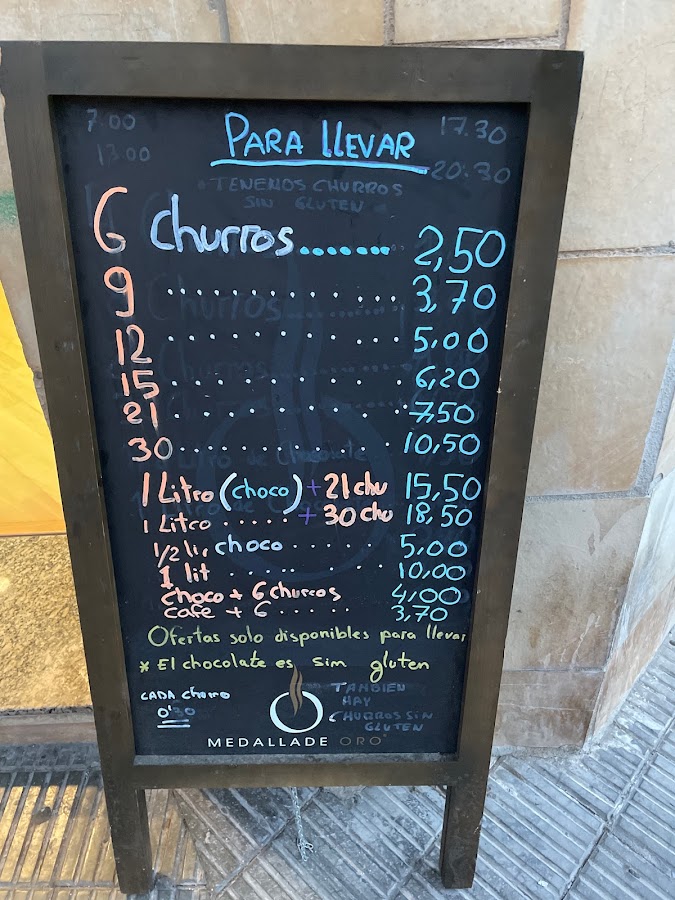 7.00
13.00
PARA LLEVAR
17.30
20:30
TENEMOS CHURROS
SIN GLUTEN
6 Churros....... 2,50
9 ........... 3,70
12 ........... 5,00
15 ........... 6,20
21 ........... 7,50
30 ........... 10,50
1 Litro (choco) + 21 chu 15,50
1 Litro ..... + 30 chu 18,50
1/2 li, choco ..... 5,00
1 lit ......... 10,00
choco + 6 churros 4,00
cafe + 6 ..... 3,70
Ofertas solo disponibles para llevar
* El chocolate es sim gluten
CADA churro
TAMBIEN
HAY
CHURROS SIN
GLUTEN
MEDALLA DE ORO